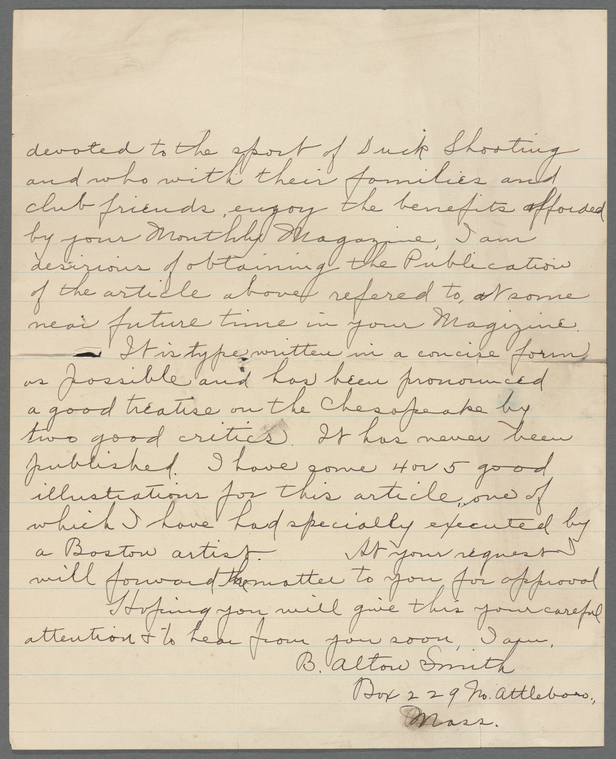 devoted to the sport of Duck Shooting
and who with their families and
club friends, enjoy the benefits afforded
by your Monthly Magazine, I am
desirious of obtaining the Publication
of the article above refered to, at some
near future time in your Magizine.
It is type written in a concise form
as possible and has been pronounced
a good treatise on the Chesapeake by
two good critics. It has never been
published. I have some 4 or 5 good
illustrations for this article, one of
which I have had specially executed by
a Boston artist. At your request I
will forward the matter to you for approval
Hoping you will give this your careful
attention & to hear from you soon, I am,
B. Alton Smith
Box 229 No. Attleboro.,
Mass.